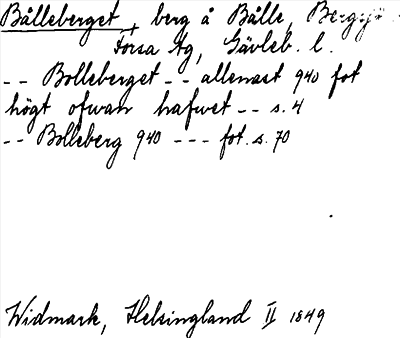 Bålleberget, berg å Bålle,
Forsa sg, Gävleb. l.
-- Bolleberget -- allenast 940 fot
högt ofwan hafwet -- s. 4
-- Bolleberg 940 --- fot. s. 70
Widmark, Helsingland II 1849